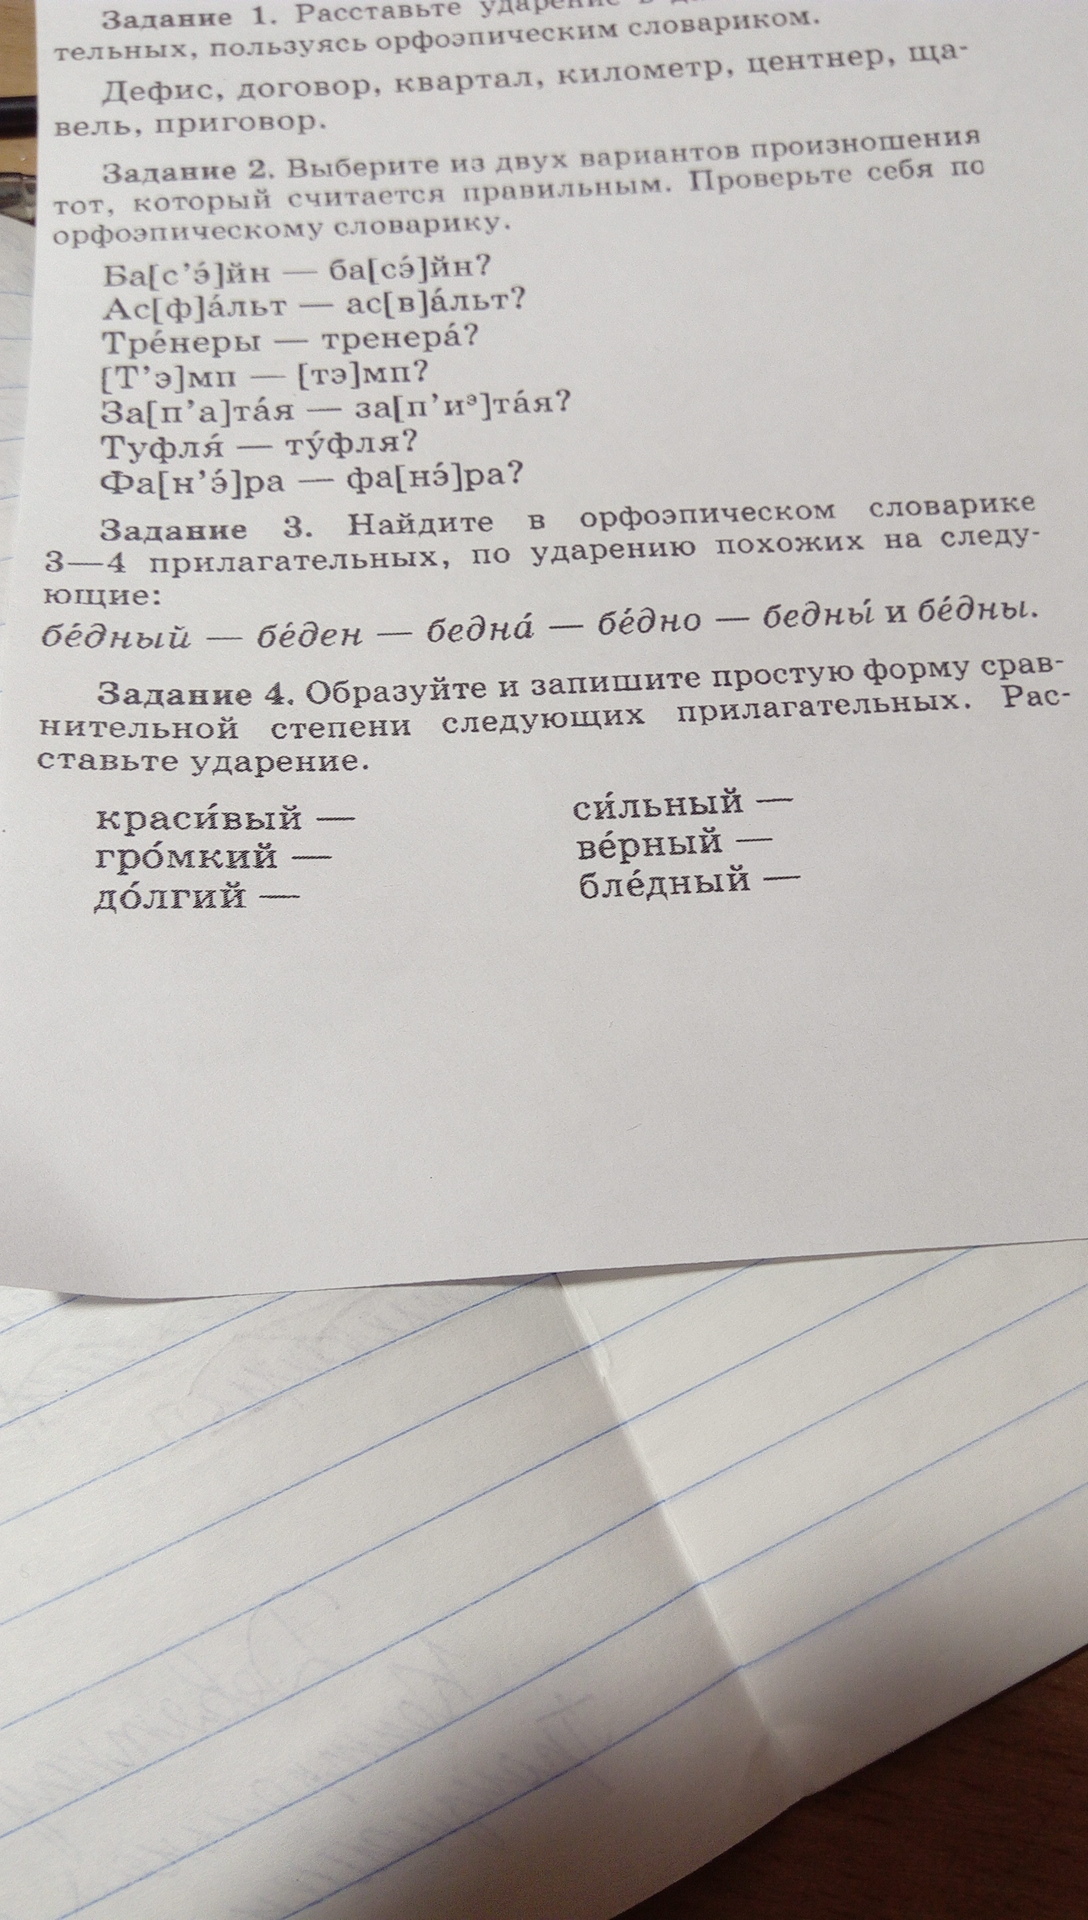 Задание 1. Расставьте ударение в
тельных, пользуясь орфоэпическим словариком.
Дефис, договор, квартал, километр, центнер, ща-
вель, приговор.
Задание 2. Выберите из двух вариантов произношения
тот, который считается правильным. Проверьте себя по
орфоэпическому словарику.
Ба[с’э́]йн — ба[сэ́]йн?
Ас[ф]а́льт — ас[в]а́льт?
Тре́неры — тренера́?
[Т’э]мп — [тэ]мп?
За[п’а]та́я — за[п’иᵊ]та́я?
Туфля́ — ту́фля?
Фа[н’э́]ра — фа[нэ́]ра?
Задание 3. Найдите в орфоэпическом словарике
3—4 прилагательных, по ударению похожих на следу-
ющие:
бе́дный — бе́ден — бедна́ — бе́дно — бедны́ и бе́дны.
Задание 4. Образуйте и запишите простую форму срав-
нительной степени следующих прилагательных. Рас-
ставьте ударение.
краси́вый — си́льный —
гро́мкий — ве́рный —
до́лгий — бле́дный —